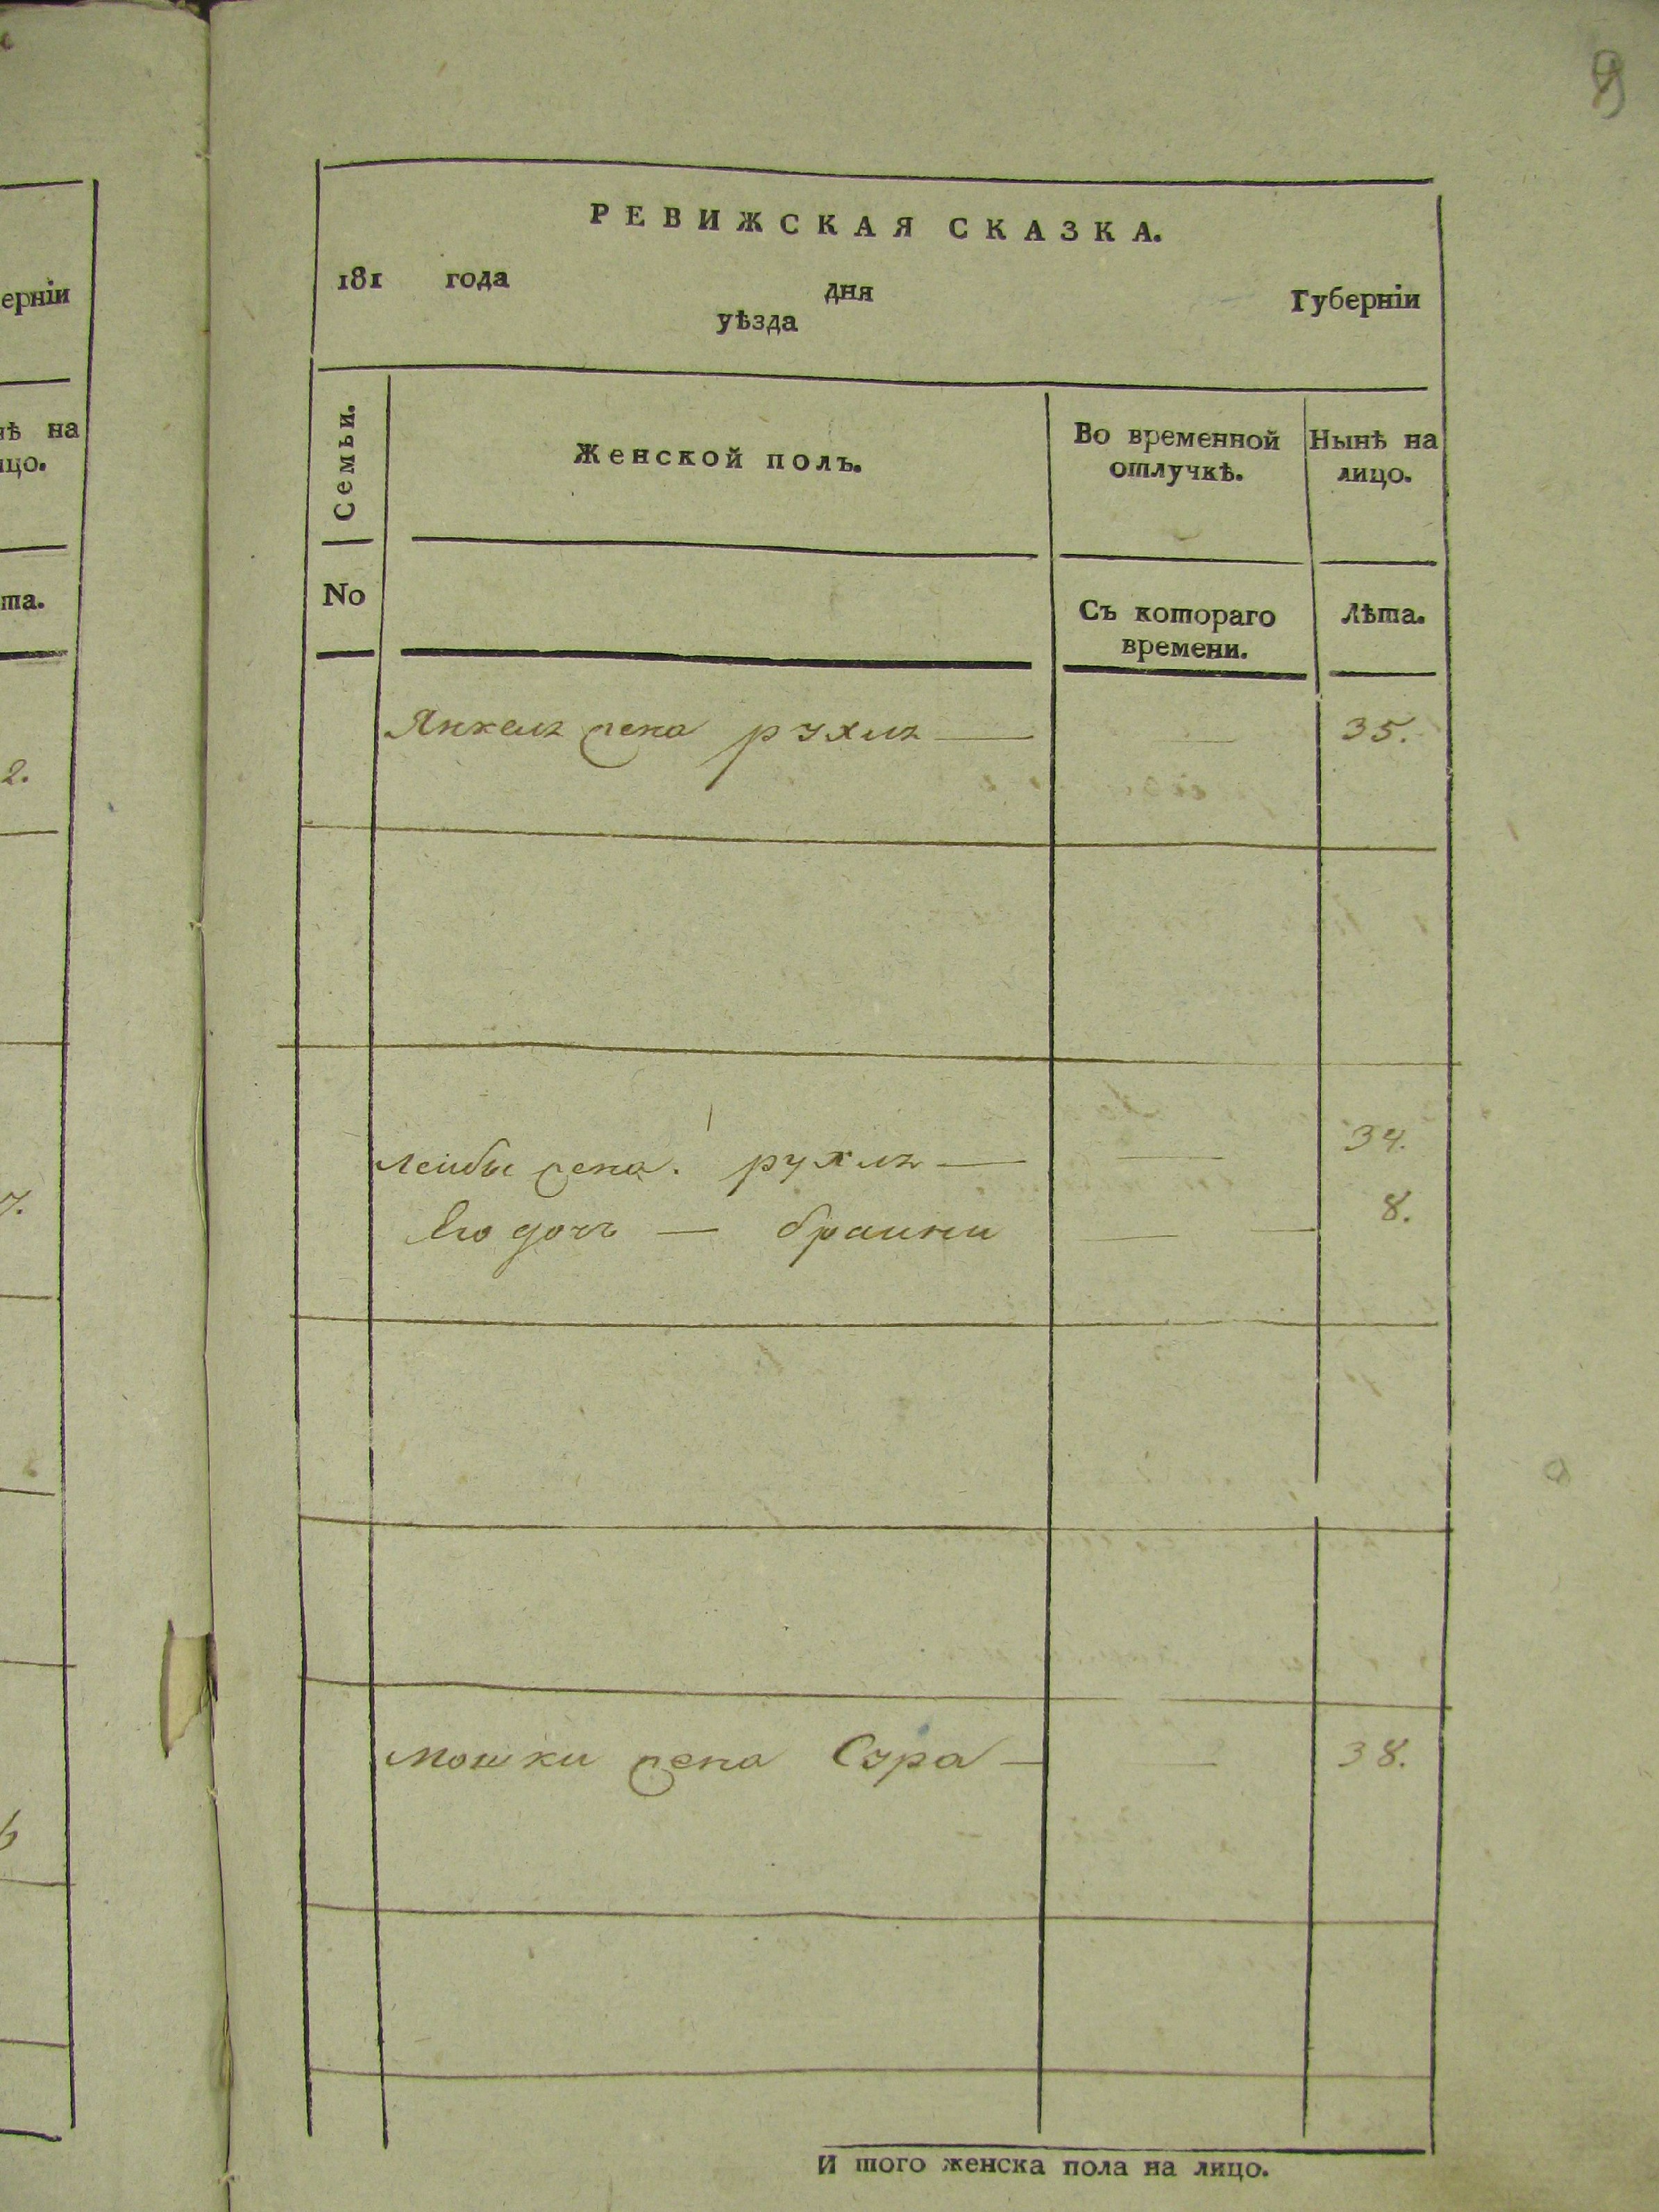 9
РЕВИЖСКАЯ СКАЗКА.
181 года дня Губерніи
уѣзда
Семьи.
Женской полъ.
Во временной отлучкѣ.
Нынѣ на лицо.
No
Съ котораго времени.
Лѣта.
Янкеля жена рухля — — 35.
Лейбы жена. рухля — — 34.
Его дочь — браини — — 8.
Мошки жена Сура — — 38.
И того женска пола на лицо.
ерніи
нѣ на
ицо.
та.
2.
7.